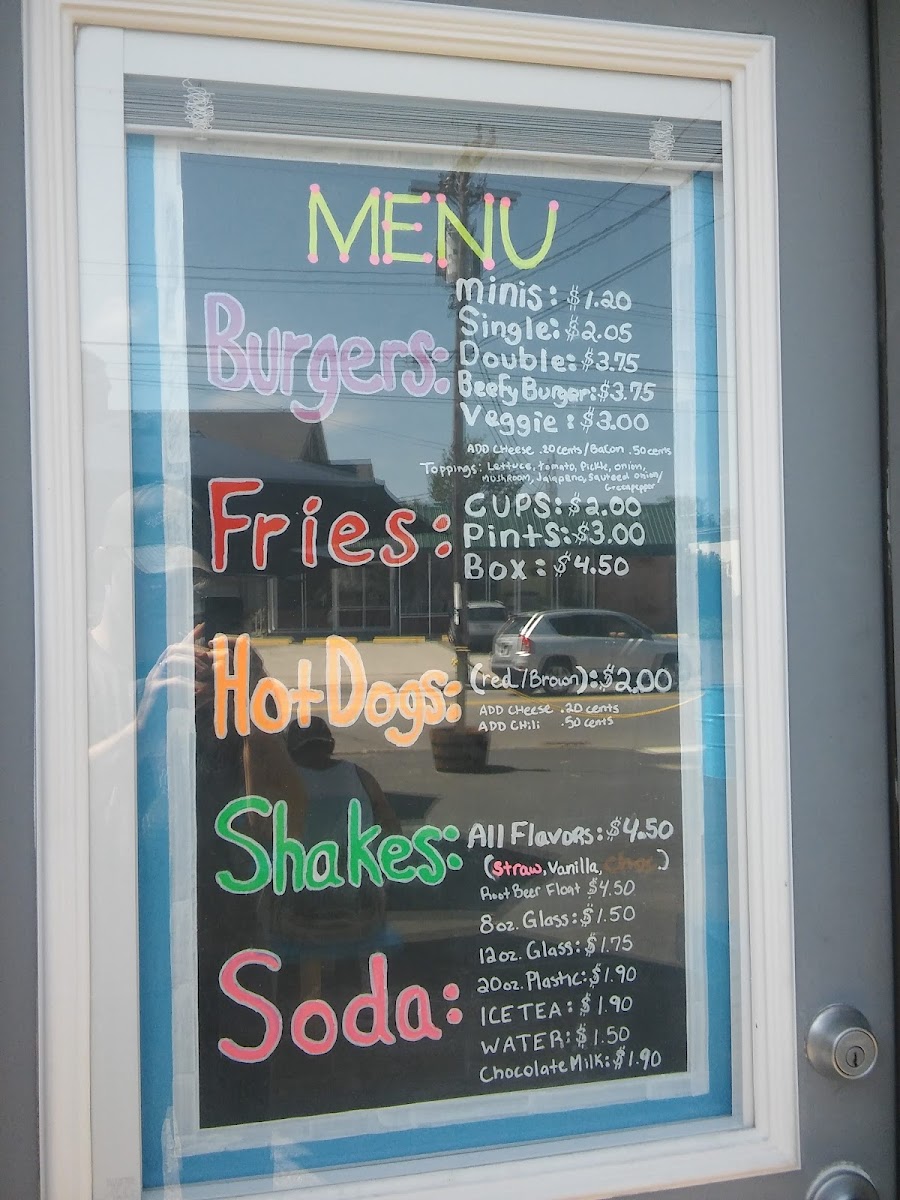 MENU
Burgers:
minis: $1.20
Single: $2.05
Double: $3.75
Beefy Burger: $3.75
Veggie: $3.00
ADD CHeese .20 cents / Bacon .50 cents
Toppings: Lettuce, tomato, Pickle, onion,
mushroom, Jalapeno, Sauteed onion/
Greenpepper
Fries:
CUPS: $2.00
Pints: $3.00
Box: $4.50
Hot Dogs:
(red/Brown): $2.00
ADD CHeese .20 cents
ADD CHili .50 cents
Shakes:
All Flavors: $4.50
(Straw, Vanilla, Choc)
Root Beer Float $4.50
Soda:
8oz. Glass: $1.50
12oz. Glass: $1.75
20oz. Plastic: $1.90
ICE TEA: $1.90
WATER: $1.50
Chocolate Milk: $1.90